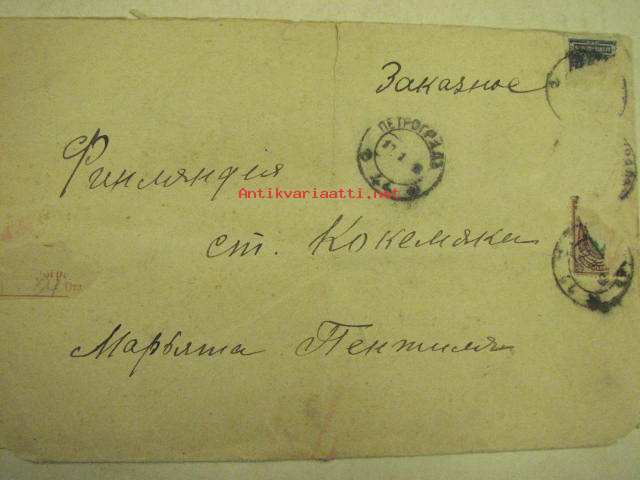 Заказное
ПЕТРОГРАДЪ
Финляндия
Antikvariaatti.net
ст. Кокемяки
Марьята Пентиля